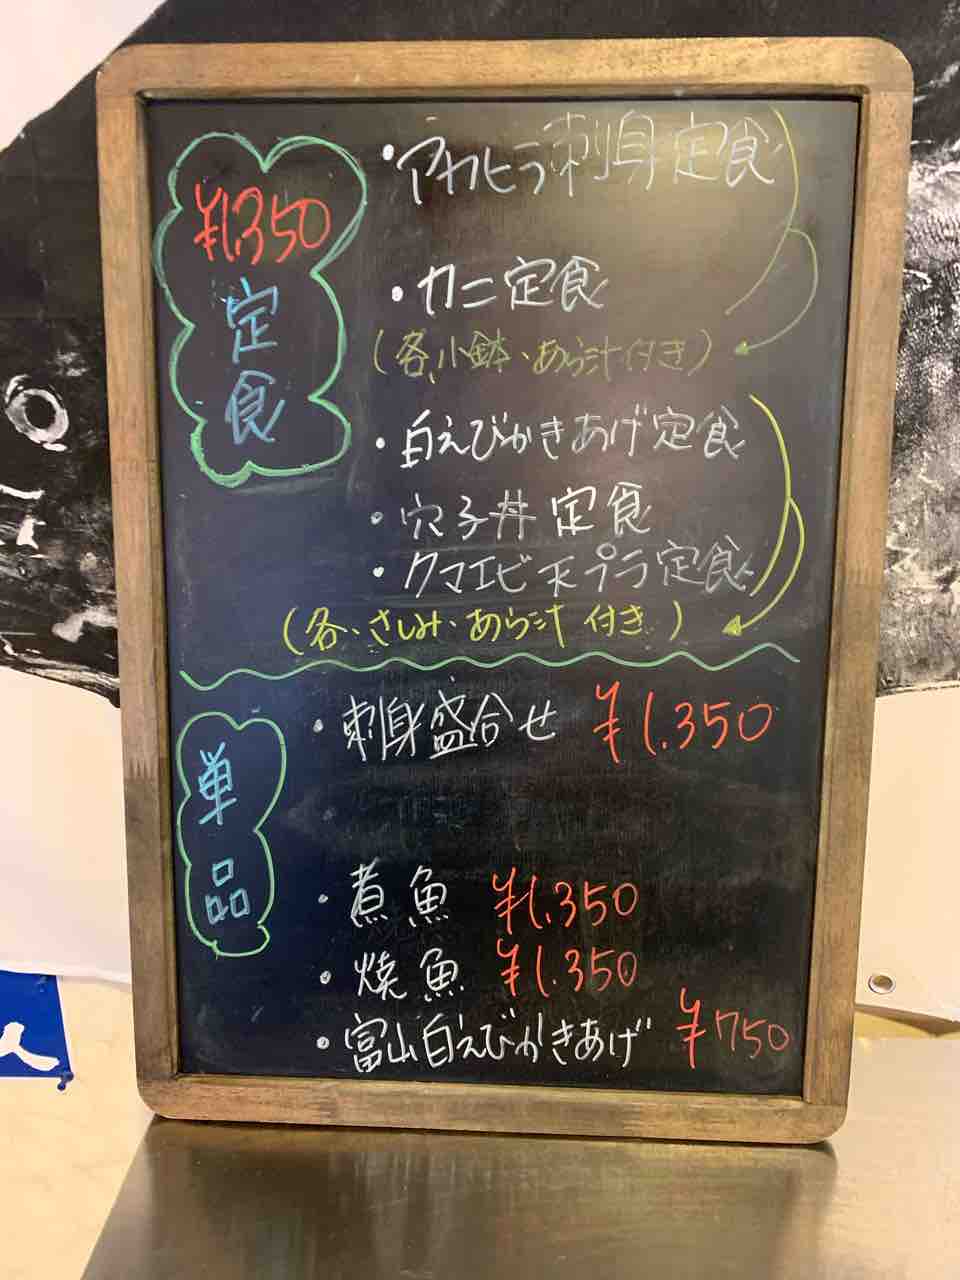 ¥1.350
定食
・アカヒラ刺身定食
・カニ定食
(各、小鉢・あら汁付き)
・白えびかきあげ定食
・穴子丼定食
・クマエビ天プラ定食
(各・さしみ・あら汁付き)
単品
・刺身盛合せ ¥1.350
・煮魚 ¥1.350
・焼魚 ¥1.350
・富山白えびかきあげ ¥750